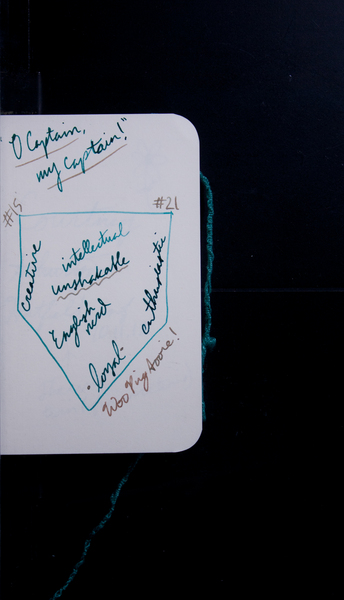 "O Captain,
my Captain!"
#15
#21
creative
intellectual
unshakable
English
nerd
enthusiastic
"loyal"